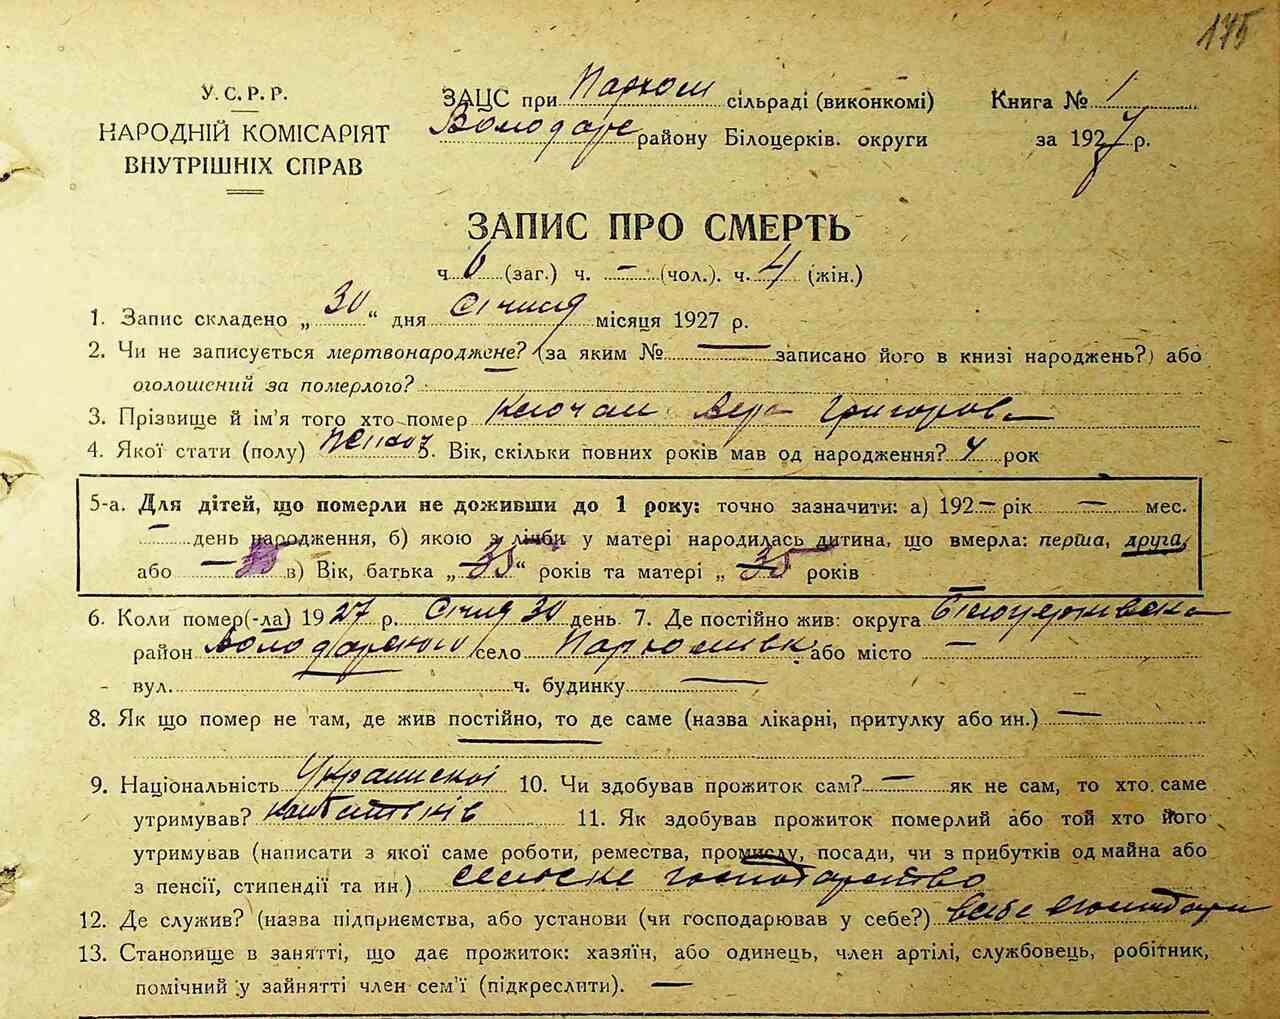 175
У.С.Р.Р.
НАРОДНІЙ КОМІСАРІЯТ
ВНУТРІШНІХ СПРАВ
ЗАЦС при Пархом сільраді (виконкомі)
Володарс району Білоцерків. округи
Книга № 1
за 1927 р.
ЗАПИС ПРО СМЕРТЬ
ч. 6 (заг.) ч. – (чол.). ч. 4 (жін.)
1. Запис складено „ 30 “ дня Січня місяця 1927 р.
2. Чи не записується мертвонароджене? (за яким № — записано його в книзі народжень?) або
оголошений за померлого?
3. Прізвище й ім'я того хто помер Вера Григоровна
4. Якої стати (полу) 5. Вік, скільки повних років мав од народження? 4 рок
5-а. Для дітей, що померли не доживши до 1 року: точно зазначити: а) 192 – рік — мес.
– день народження, б) якою з лічби у матері народилась дитина, що вмерла: перша, друга,
або – 35 в) Вік, батька „ 35 “ років та матері „ 35 років
6. Коли помер(-ла) 1927 р. Січня 30 день 7. Де постійно жив: округа Білоцерківська
район Володарського село Пархомівка або місто –
вул. ч. будинку —
8. Як що помер не там, де жив постійно, то де саме (назва лікарні, притулку або ин.) —
9. Національність Украінскоі 10. Чи здобував прожиток сам? — як не сам, то хто саме
утримував? 11. Як здобував прожиток померлий або той хто його
утримував (написати з якої саме роботи, ремества, промислу, посади, чи з прибутків од майна або
з пенсії, стипендії та ин.) сельске господарство
12. Де служив? (назва підприємства, або установи (чи господарював у себе?) всебе
13. Становище в занятті, що дає прожиток: хазяїн, або одинець, член артілі, службовець, робітник,
помічний у зайнятті член сем'ї (підкреслити). —